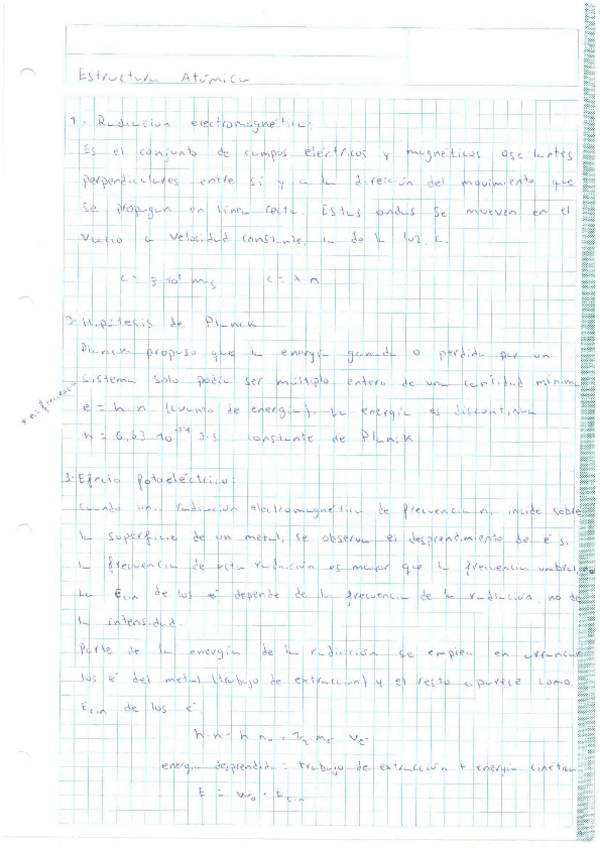 Estructura Atómica
1. Radiación electromagnética:
Es el conjunto de campos eléctricos y magnéticos oscilantes
perpendiculares entre sí y a la dirección del movimiento que
se propagan en línea recta. Estas ondas se mueven en el
vacío a velocidad constante, la de la luz, c.
c = m/s c = λ·n
2- Hipótesis de Planck
Planck propuso que la energía ganada o perdida por un
sistema solo podía ser múltiplo entero de una cantidad mínima
* n: frecuencia
e = h·n (cuanto de energía). La energía es discontinua
h = 6,63·10 J·s constante de Planck
3- Efecto fotoeléctrico:
Cuando una radiación electromagnética de frecuencia n, incide sobre
la superficie de un metal, se observa el desprendimiento de e⁻ si
la frecuencia de esta radiación es mayor que la frecuencia umbral, n₀
La Ecin de los e⁻ depende de la frecuencia de la radiación, no de
la intensidad.
Parte de la energía de la radiación se emplea en arrancar
los e⁻ del metal (trabajo de extracción) y el resto aparece como
Ecin de los e⁻.
h·n - h n₀ = 1/2 me
energía desprendida = trabajo de extracción + energía cinética
E = W₀ · Ecin